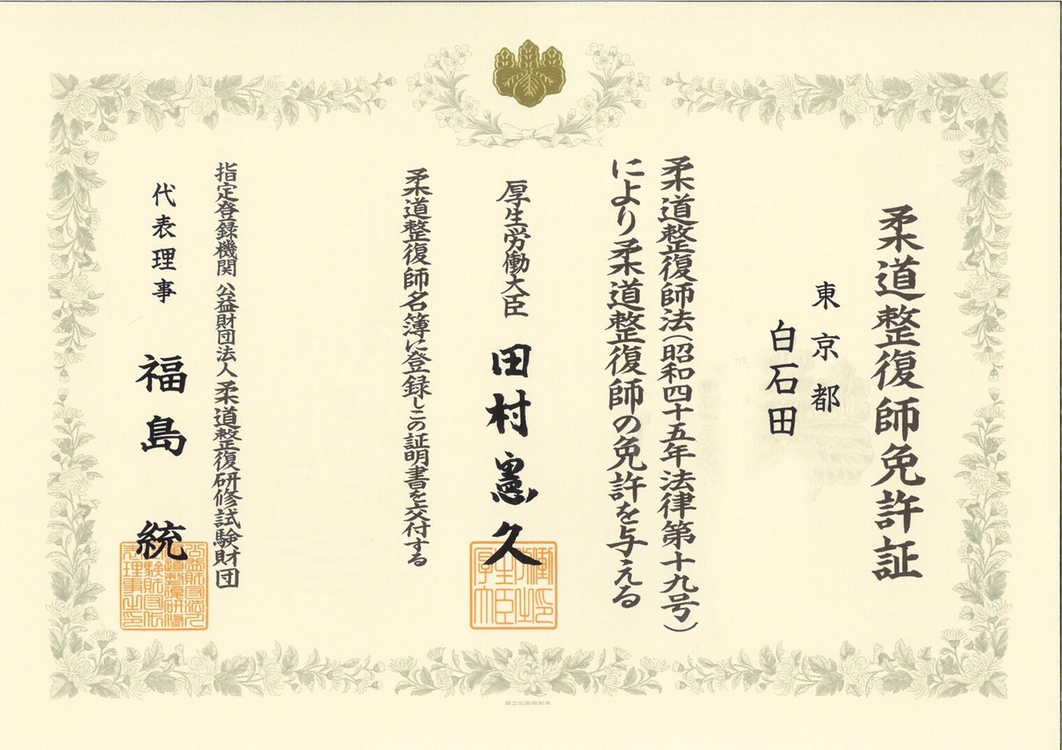 柔道整復師免許証
東京都
白石田
柔道整復師法(昭和四十五年法律第十九号)
により柔道整復師の免許を与える
厚生労働大臣 田村憲久
柔道整復師名簿に登録しこの証明書を交付する
指定登録機関 公益財団法人柔道整復研修試験財団
代表理事 福島 統